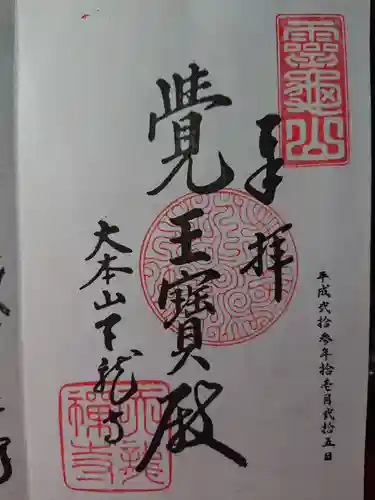 靈龜山
奉拝
平成弐拾参年拾壱月弐拾五日
覺王寶殿
大本山天龍寺
天龍禪寺